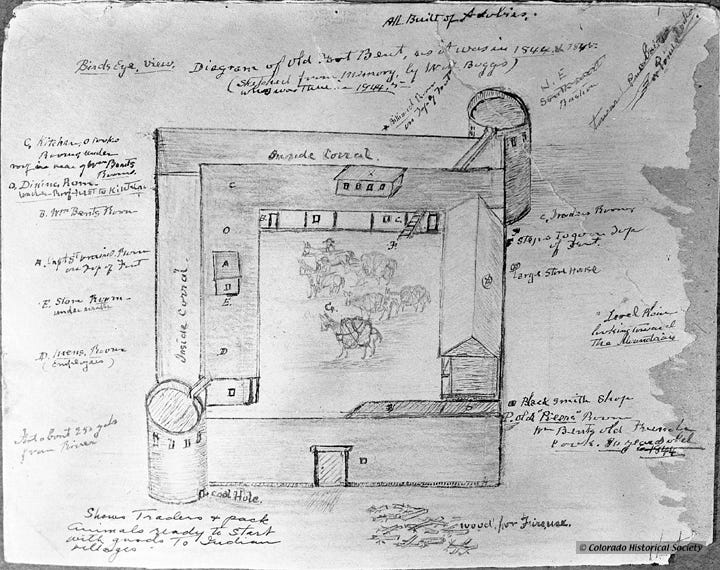 All Built of Adobies.
Birds Eye, View. Diagram of Old Fort Bent, as it was in 1844 & 1845.
(Sketched from Memory, by Wm Boggs)
who was there in 1844,5
Billiard Room
on Top of Fort
N.E.
Bastion
C, Kitchen, & Cooks
Rooms under
roof in rear of Wm Bents
Rooms.
O, Dining Room
under Roof next to Kitchen
B. Wm Bents Room
A. Capt St Vrains Room
on Top of Fort
E. Store Room
underneath
D. Mens, Rooms
(Employees)
Inside Corral.
Inside Corral.
C
O
A
D
E.
D
B
C
G
P
C, Traders Rooms
Steps to go on Top
of Fort.
Large Store House
Level Plain
looking toward
The Mountains
Black Smith Shop
P. old
Room
Wm Bents old French
Cook.
Fort about 250 yds
from River
Coal Hole.
Shows Traders & pack
animals ready to start
with goods To Indian
villages
wood for Firuse.
© Colorado Historical Society